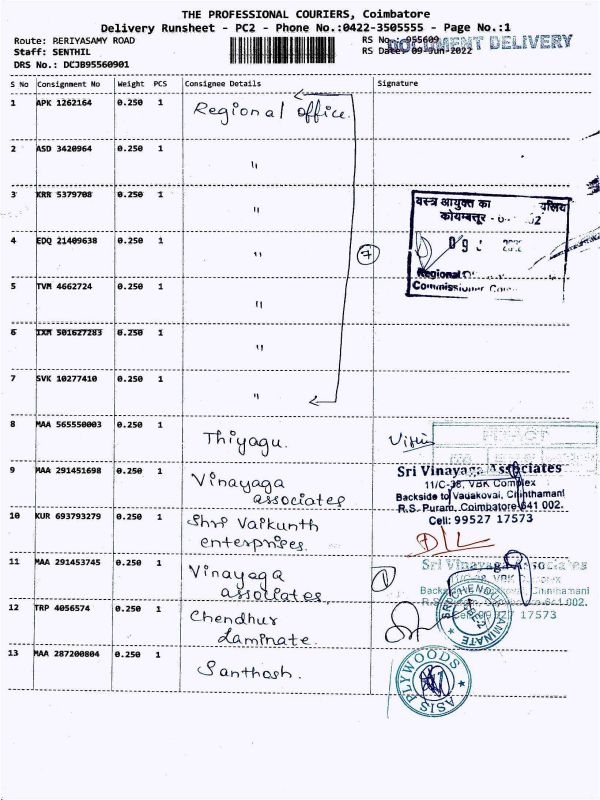 THE PROFESSIONAL COURIERS, Coimbatore
Delivery Runsheet - PC2 - Phone No.:0422-3505555 - Page No.:1
Route: RERIYASAMY ROAD
RS No: 955609
Staff: SENTHIL
RS Date: 09-Jun-2022
DOCUMENT DELIVERY
DRS No.: DCJB95560901
S No Consignment No Weight PCS Consignee Details Signature
1 APK 1262164 0.250 1 Regional office.
2 ASD 3420964 0.250 1 "
3 KRR 5379708 0.250 1 "
वस्त्र आयुक्त का
कोयम्बत्तूर -
4 EDQ 21409638 0.250 1 "
7
09
Regional
Commissioner
5 TVM 4662724 0.250 1 "
6 IXM 501627283 0.250 1 "
7 SVK 10277410 0.250 1 "
8 MAA 565550003 0.250 1 Thiyagu.
9 MAA 291451698 0.250 1 Vinayaga
associates
Sri Vinayaga Associates
11/C-38, VBK Complex
Backside to Vadakovai, Chinthamani
R.S. Puram, Coimbatore 641 002.
Cell: 99527 17573
10 KUR 693793279 0.250 1 Shri Vaikunth
enterprises.
11 MAA 291453745 0.250 1 Vinayaga
associates
1
Sri Vinayaga Associates
VBK
Chinthamani
641 002.
17573
12 TRP 4056574 0.250 1 Chendhur
Laminate.
SRI CHENDUR LAMINATE
13 MAA 287200804 0.250 1 Santhosh.
ASIS PLYWOODS